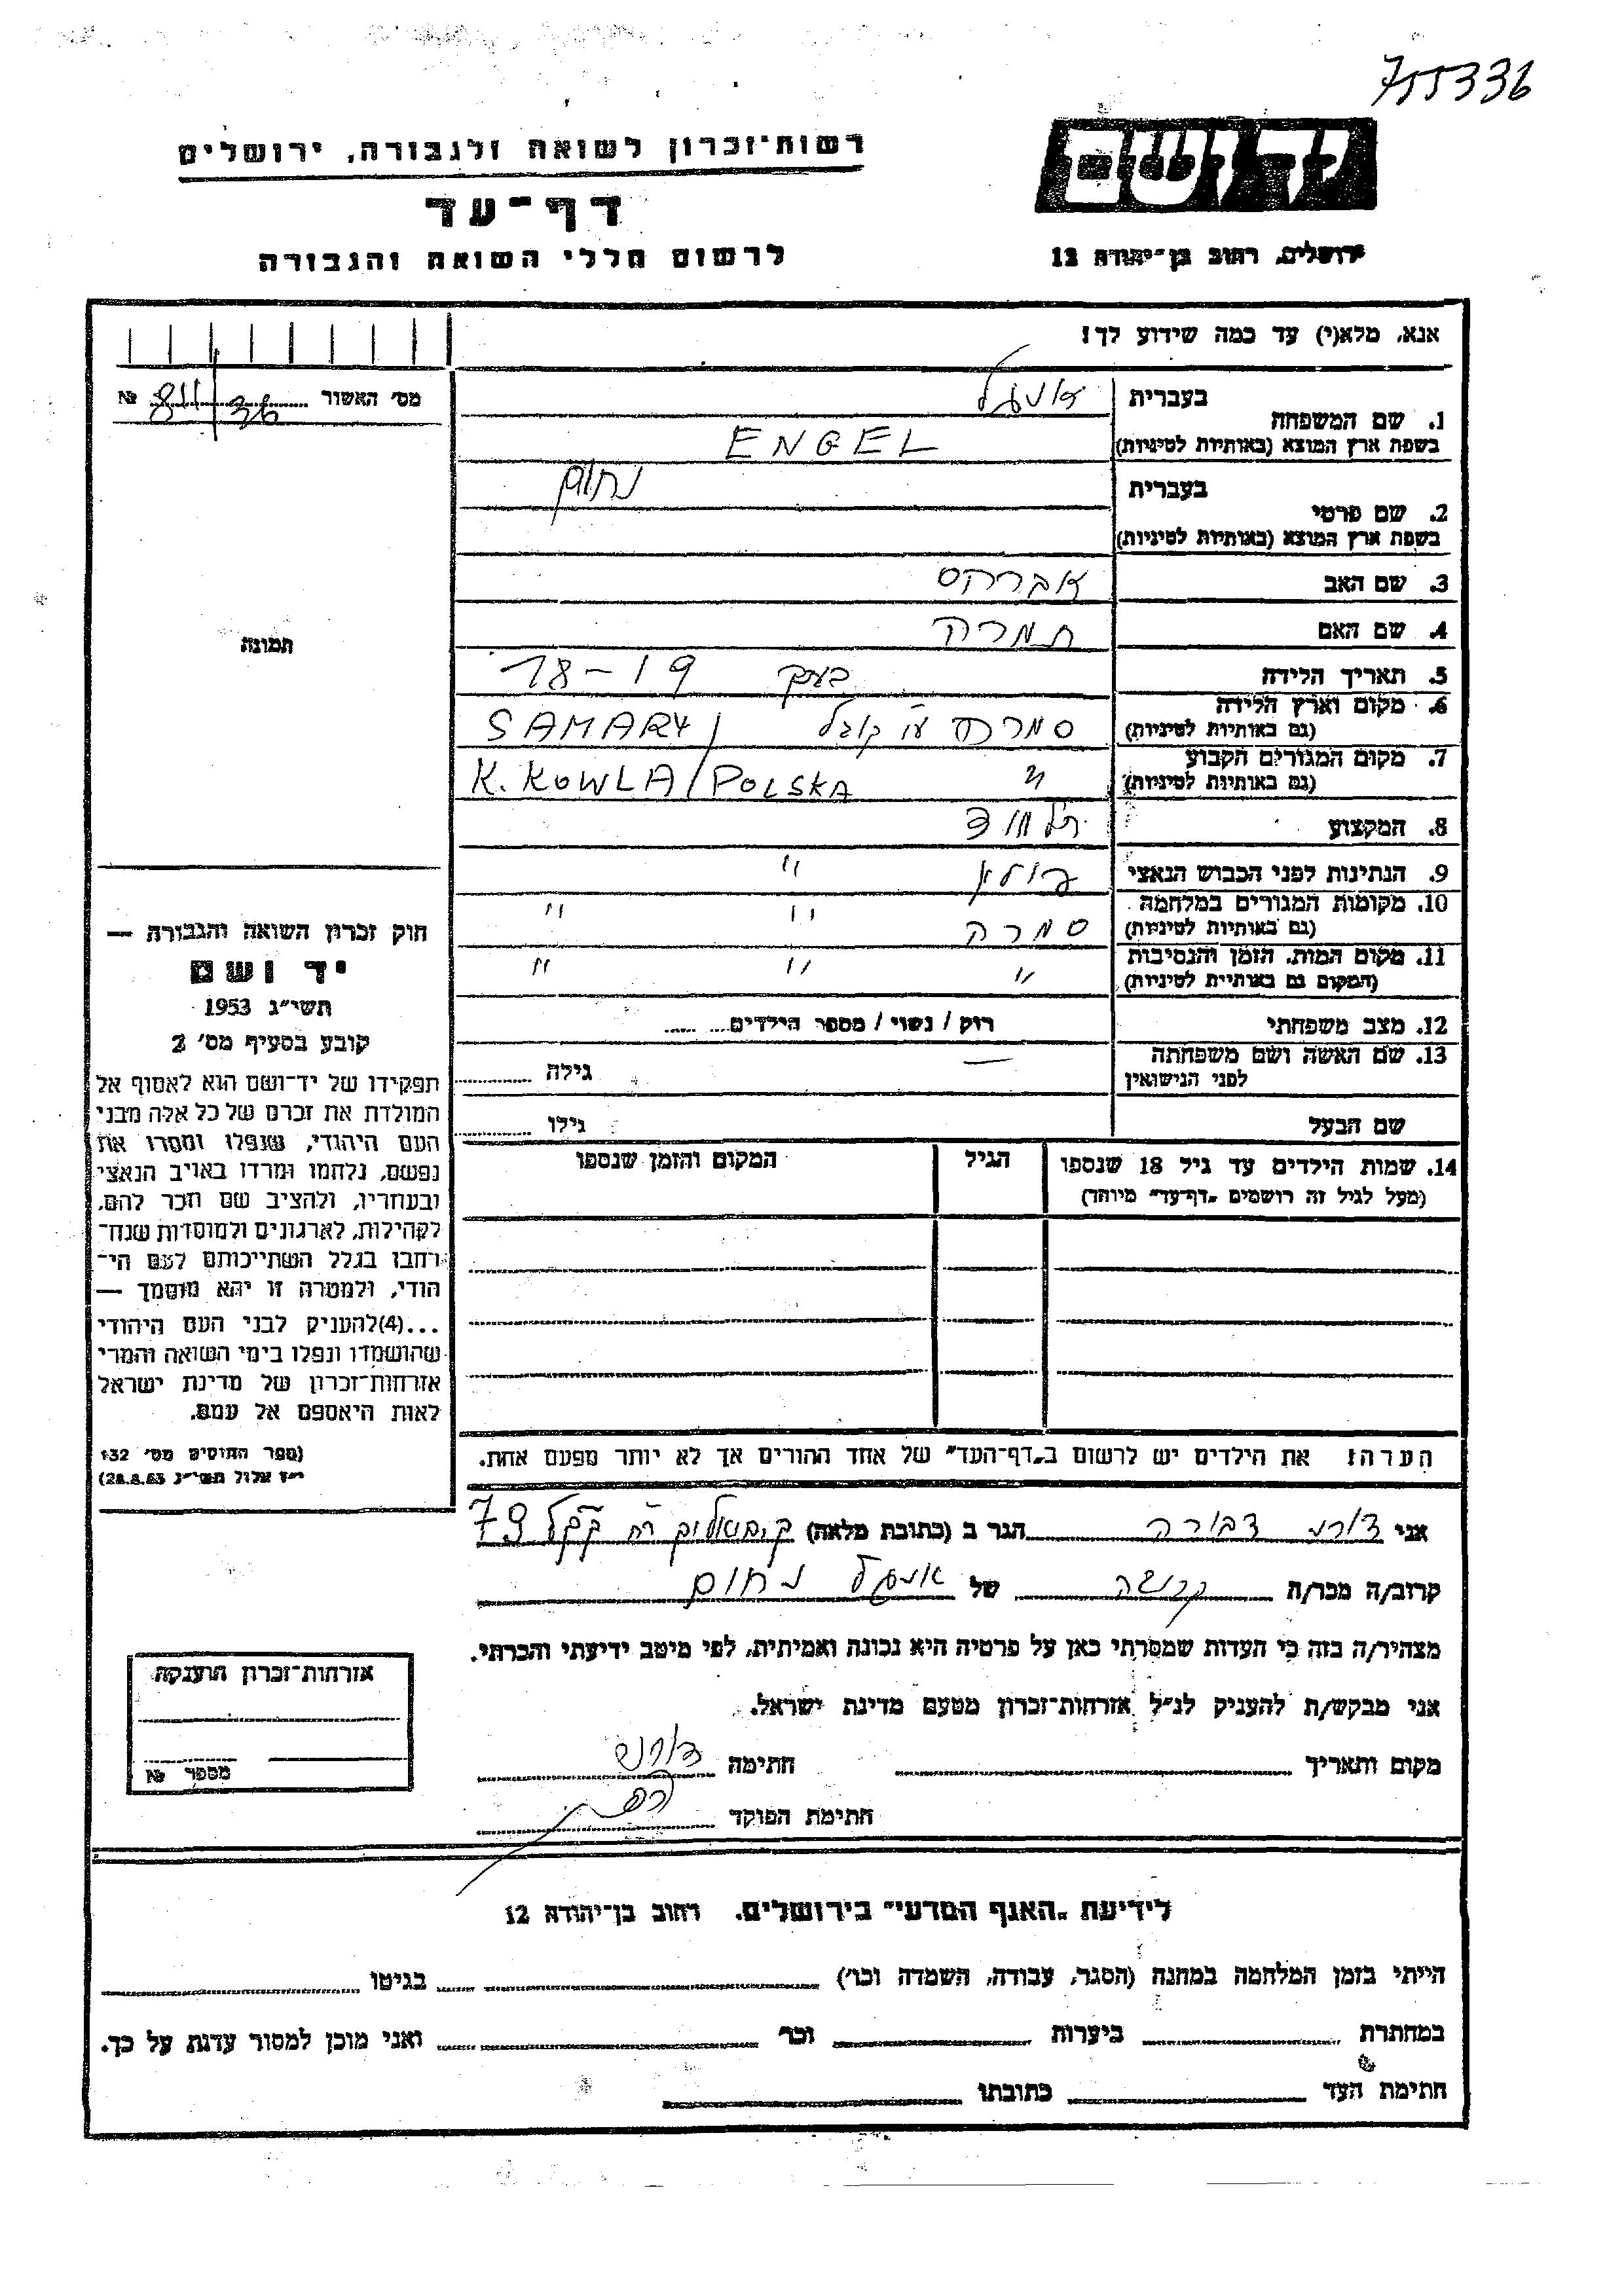 755336
יד ושם
רשות־זכרון לשואה ולגבורה, ירושלים
דף־עד
לרשום חללי השואה והגבורה
ירושלים, רחוב בן־יהודה 12
אנא, מלא(י) עד כמה שידוע לך!
מס׳ האשור № 8411/36
1. שם המשפחה
בעברית
בשפת ארץ המוצא (באותיות לטיניות)
ENGEL
2. שם פרטי
בעברית נחום
בשפת ארץ המוצא (באותיות לטיניות)
3. שם האב אברהם
4. שם האם תמרה
5. תאריך הלידה בערך 18-19
6. מקום וארץ הלידה
(גם באותיות לטיניות)
SAMARY/
7. מקום המגורים הקבוע
(גם באותיות לטיניות)
״ K. KOWLA/POLSKA
8. המקצוע תלמיד
9. הנתינות לפני הכבוש הנאצי פולין ״
10. מקומות המגורים במלחמה
(גם באותיות לטיניות)
סמרה ״ ״
11. מקום המות, הזמן והנסיבות
(המקום גם באותיות לטיניות)
״ ״ ״
12. מצב משפחתי רוק / נשוי / מספר הילדים
13. שם האשה ושם משפחתה
לפני הנישואין
— גילה
שם הבעל גילו
14. שמות הילדים עד גיל 18 שנספו
(מעל לגיל זה רושמים „דף־עד״ מיוחד)
הגיל
המקום והזמן שנספו
הערה: את הילדים יש לרשום ב„דף־העד״ של אחד ההורים אך לא יותר מפעם אחת.
תמונה
חוק זכרון השואה והגבורה —
יד ושם
תשי״ג 1953
קובע בסעיף מס׳ 2
תפקידו של יד־ושם הוא לאסוף אל
המולדת את זכרם של כל אלה מבני
העם היהודי, שנפלו ומסרו את
נפשם, נלחמו ומרדו באויב הנאצי
ובעוזריו, ולהציב שם וזכר להם,
לקהילות, לארגונים ולמוסדות שנח־
רבו בגלל השתייכותם לעם הי־
הודי, ולמטרה זו יהא מוסמך —
...(4)להעניק לבני העם היהודי
שהושמדו ונפלו בימי השואה והמרי
אזרחות־זכרון של מדינת ישראל
לאות היאספם אל עמם.
(ספר החוקים מס׳ 132
י״ז אלול תשי״ג 28.8.53)
אני דבורה הגר ב (כתובת מלאה) 79
קרוב/ה מכר/ה קרובה של אנגל נחום
מצהיר/ה בזה כי העדות שמסרתי כאן על פרטיה היא נכונה ואמיתית, לפי מיטב ידיעתי והכרתי.
אני מבקש/ת להעניק לנ״ל אזרחות־זכרון מטעם מדינת ישראל.
מקום ותאריך חתימה
חתימת הפוקד
אזרחות־זכרון הוענקה
מספר №
לידיעת „האגף המדעי״ בירושלים. רחוב בן־יהודה 12
הייתי בזמן המלחמה במחנה (הסגר, עבודה, השמדה וכו׳) בגיטו
במחתרת ביערות וכו׳ ואני מוכן למסור עדות על כך.
חתימת העד כתובתו